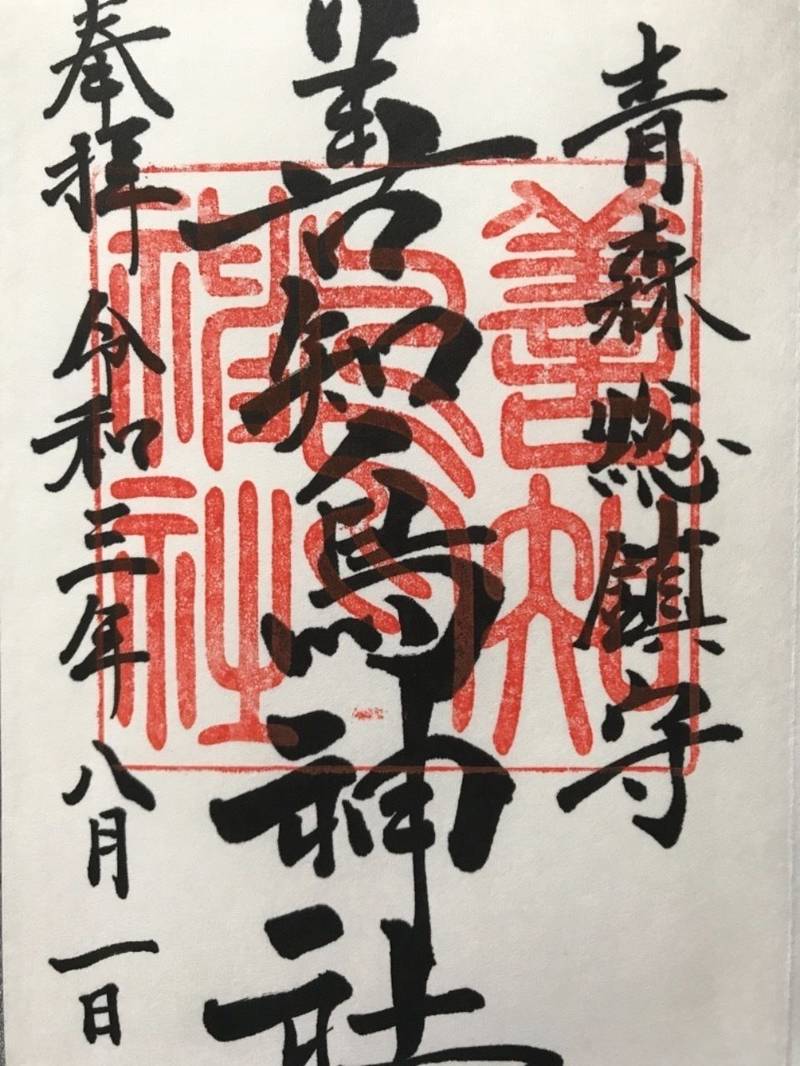 青森總鎮守
善知鳥神社
奉拝 令和三年 八月 一日
善知鳥神社